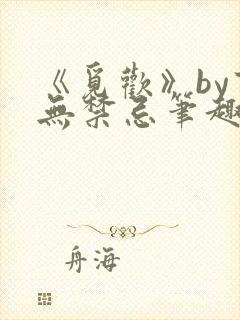 《覓歡》by
無禁忌筆趣
舟海